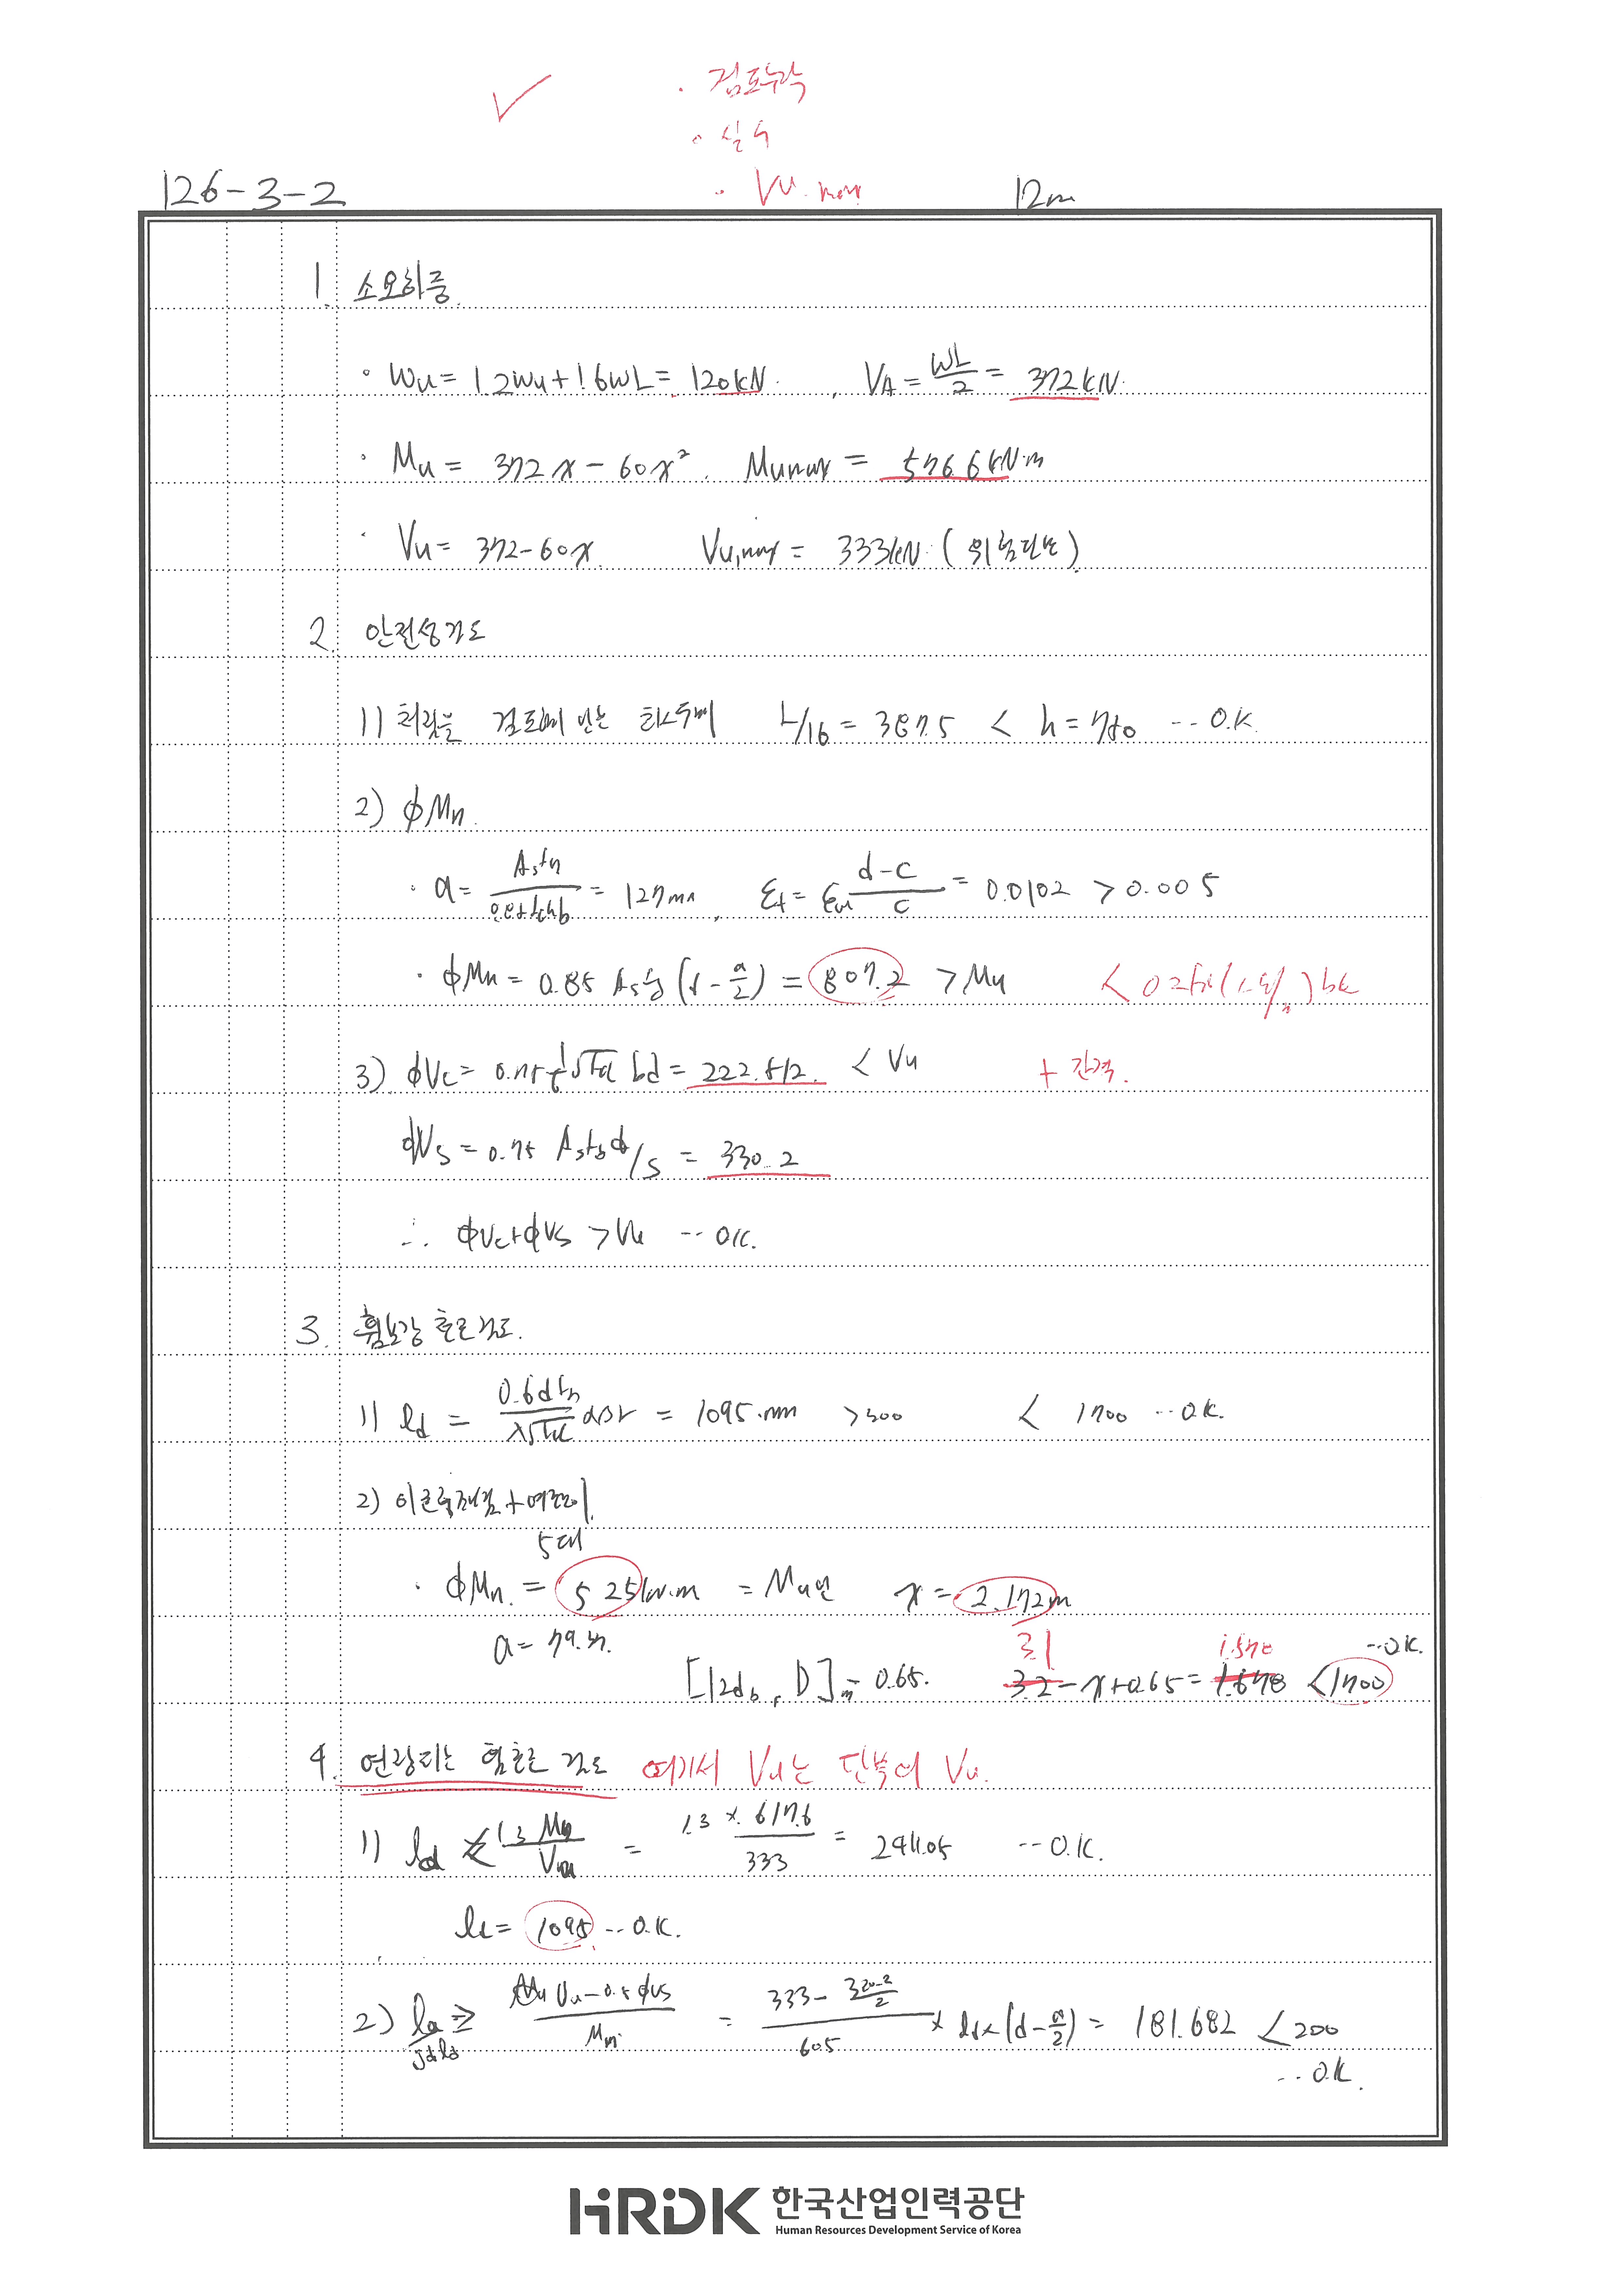 · 검토누락
· 실수
· Vu.max
126-3-2
12m
1. 소요하중.
· Wu = 1.2Wd + 1.6WL = 120kN. , VA = WL/2 = 372kN.
· Mu = 372x - 60x². Mu,max = 576.6kN·m
· Vu = 372-60x. Vu,max = 333kN. (위험단면)
2. 안전성검토
1) 처짐을 검토 L/16 = 387.5 < h = 780 --- O.K.
2) ϕMn.
· a = Asfy/0.85fckb = 127mm, εt = εcu d-c/c = 0.0102 > 0.005
· ϕMn = 0.85 Asfy (d - a/2) = 807.2 > Mu
3) ϕVc = 0.75 1/6 √fck bd = 222.812. < Vu + 간격.
ϕVs = 0.75 Asfyd/s = 330.2
∴ ϕVc+ϕVs > Vu --- O.K.
3. 휨보강 철근검토.
1) ld = 0.6dfy/λ√fck αβγ = 1095.mm > 300 < 1700 --- O.K.
2) 이론절단점 + 연장길이.
5대
· ϕMn. = 525kN.m = Mu인 x = 2.172m
a = 79.37.
3.1 1.578 --- O.K.
[12db, D]m = 0.65. 3.2 - x + 0.65 = 1.678 < 1700
4. 연장되는 휨철근 검토 여기서 Vu는 단부의 Vu.
1) ld ≤ 1.3 Mn/Vu = 1.3 × 617.6/333 = 2411.05 --- O.K.
ld = 1095 --- O.K.
2) la ≥ Vu-0.5ϕVs/Mn = 333 - 330.2/2 /605 × ld × (d - a/2) = 181.682 < 200
--- O.K.
HRDK 한국산업인력공단
Human Resources Development Service of Korea